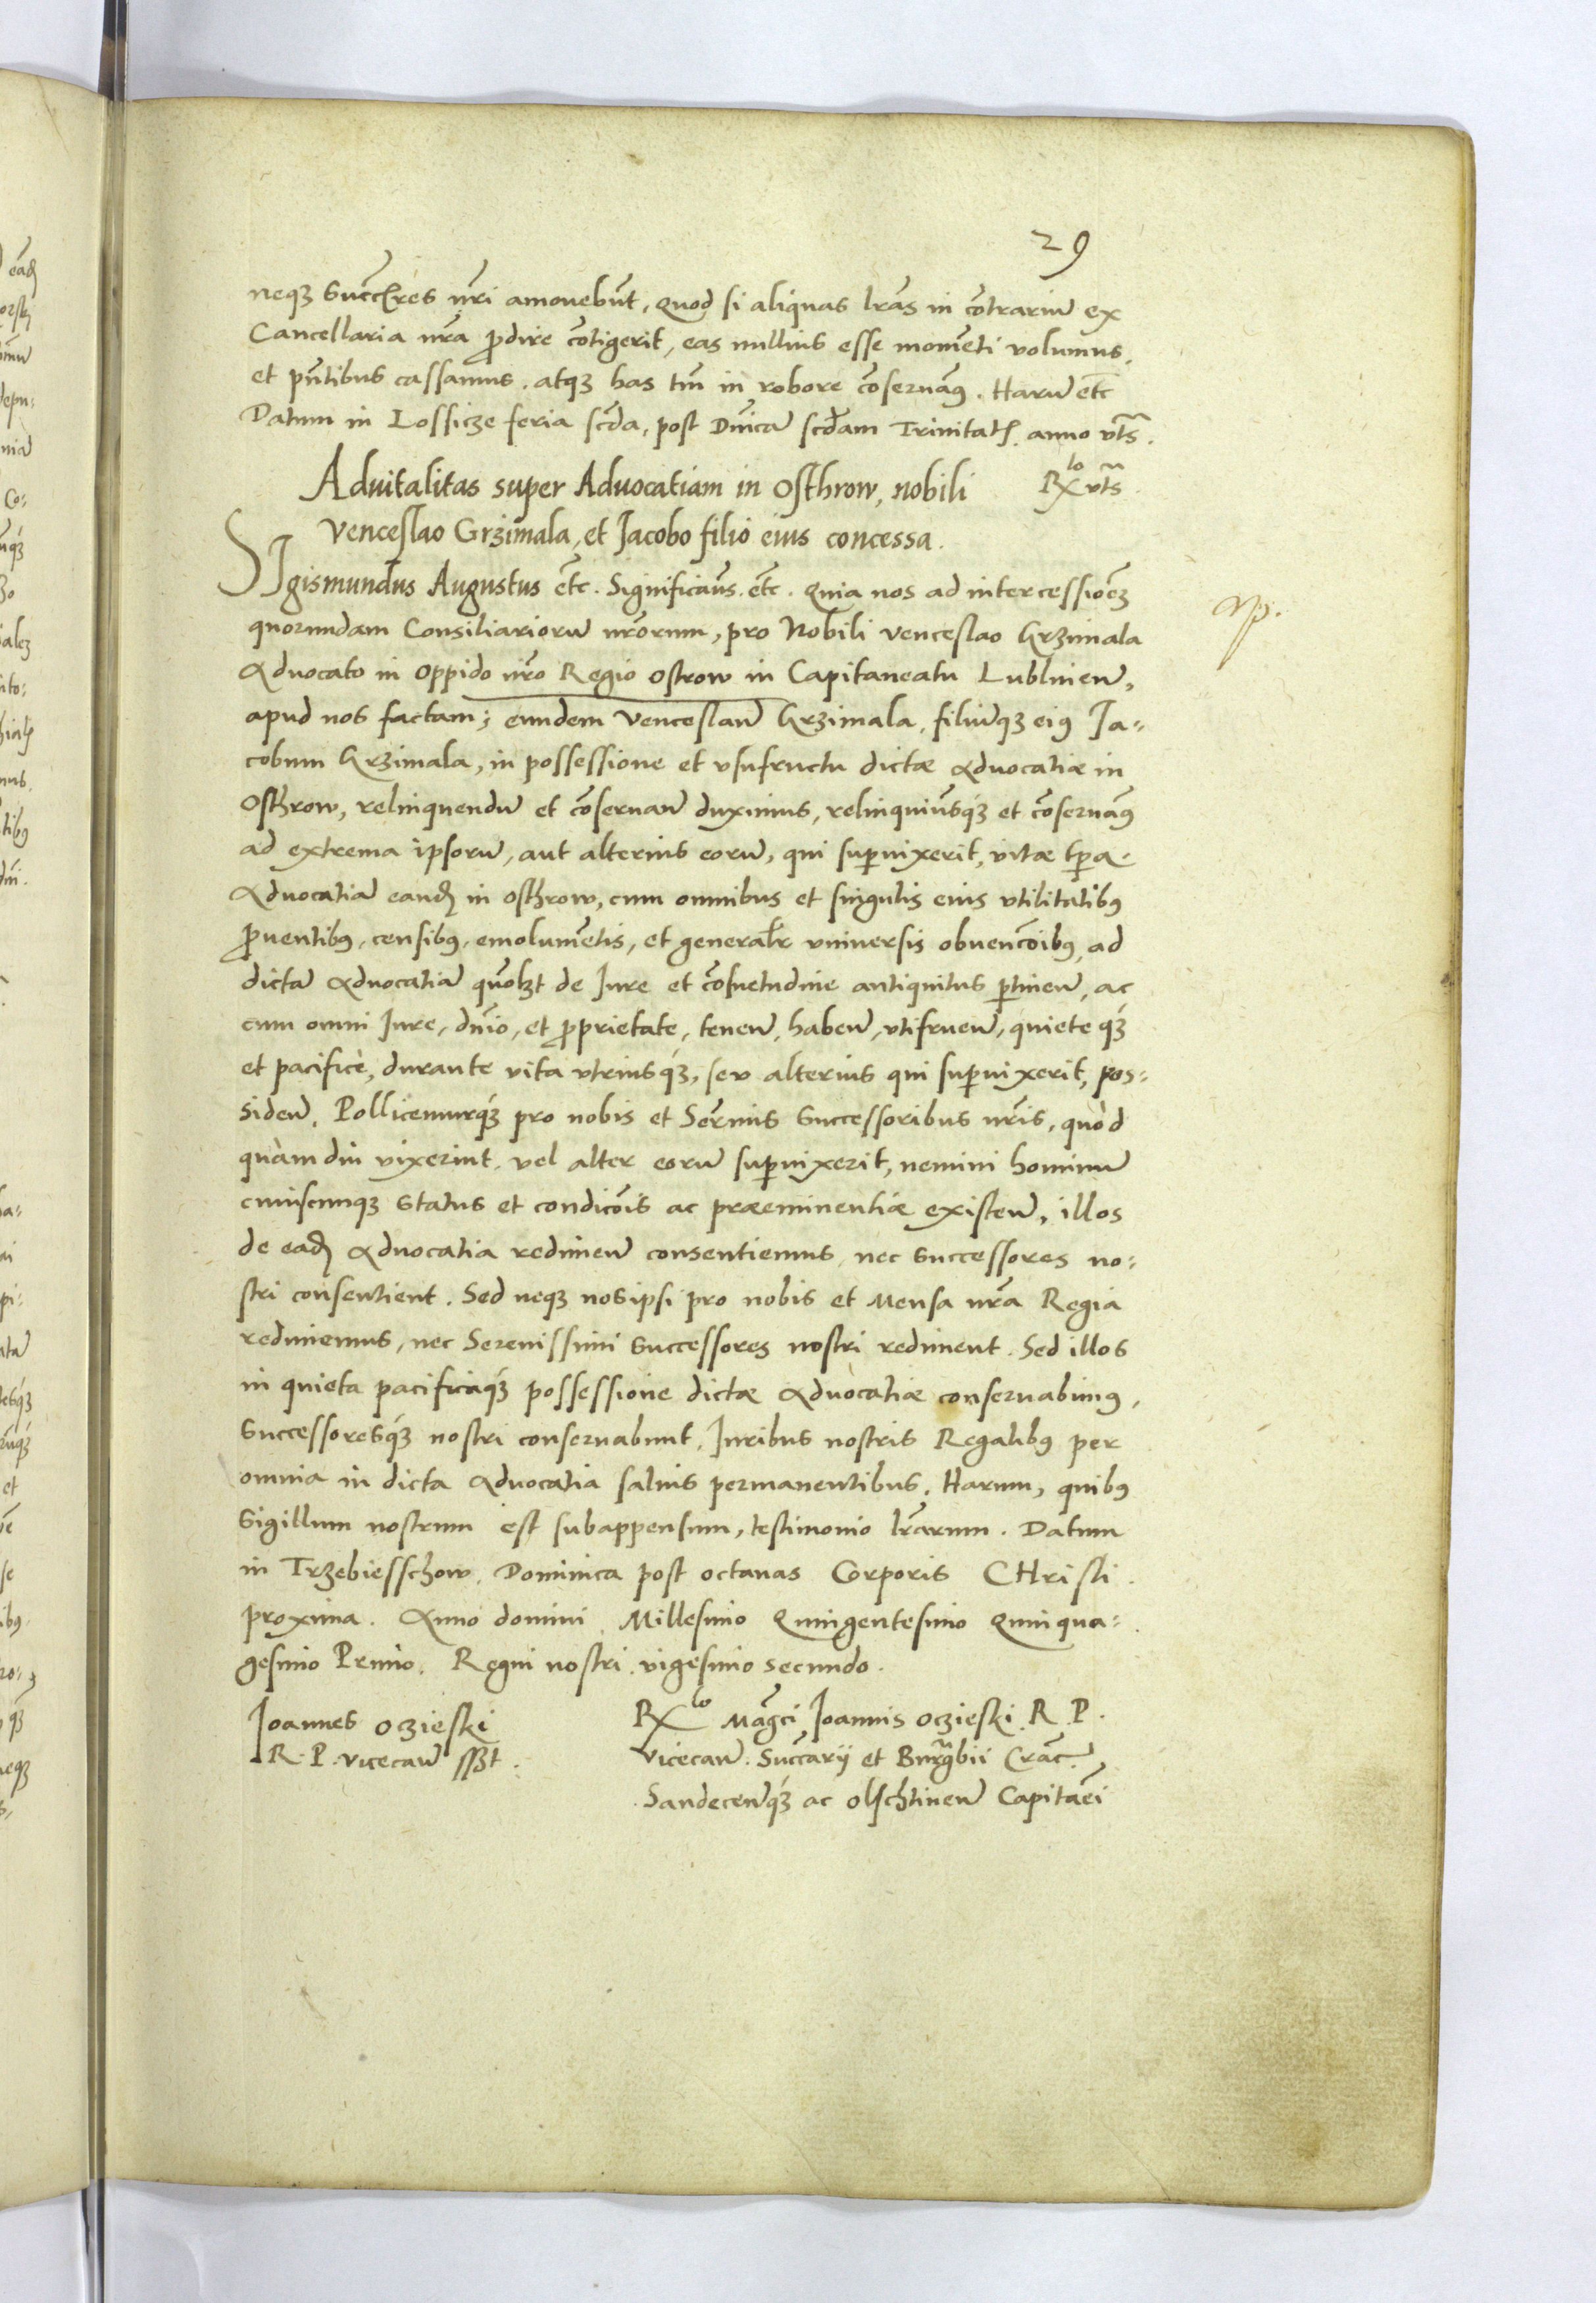 29
neqз Succ̄res nr̄i amouebūt, quod si aliquas lr̄as in cōtrariū ex
Cancellaria nr̄a ꝓdire cōtigerit, eas nullius esse momēti volumus,
et pn̄tibus cassamus. atqз has tm̄ in robore cōseruam̄9. Harū etc̄
Datum in Lossicze feria scd̄a, post Dn̄icā scd̄am Trinitatꝭ anno vts̄.
Aduitalitas super Aduocatiam in Osthrow, nobili
Rx^lo vts̄
Venceslao Grzimala, et Jacobo filio eius concessa.
SIgismundus Augustus etc̄. Significam̄us. etc̄. Quia nos ad intercessionēз
np.
quorundam Consiliariorū nr̄orum, pro Nobili Venceslao Grzimala
Aduocato in Oppido nr̄o Regio Ostrow in Capitaneatu Lublinen̄,
apud nos factam; eundem Venceslaū Grzimala, filiūqз ei9 Ja-
cobum Grzimala, in possessione et vsufructu dictæ Aduocatiæ in
Osthrow, relinquendū et cōseruan̄ duximus, relinquim̄usqз et cōseruam̄9
ad extrema ipsorū, aut alterius eorū, qui supuixerit, vitæ tp̄a.
Aduocatiā eandꝭ in Osthrow, cum omnibus et singulis eius vtilitatib9
ꝓuentib9, censib9, emolumētis, et generalr̄ vniuersis obuenc̄oib9, ad
dictā Aduocatiā quōlзt de Jure et cōsuetudine antiquitus ꝑtinen̄, ac
cum omni Jure, dn̄io, et ꝓprietate, tenen̄, haben̄, vtifruen̄, quiete qз
et pacificè, durante vita vtriusqз, seu alterius qui supuixerit, pos-
siden̄. Pollicemurqз pro nobis et Ser̄mis Successoribus nr̄is, quòd
quàm diu vixerint, vel alter eorū supuixerit, nemini hominū
cuiuscunqз Status et condicōis ac præeminentiæ existen̄, illos
de eadꝭ Aduocatia redimen̄ consentiemus, nec Successores no-
stri consentient. Sed neqз nosipsi pro nobis et Mensa nr̄a Regia
redimemus, nec Serenissimi Successores nostri rediment. Sed illos
in quieta pacificaqз possessione dictæ Aduocatiæ conseruabim9,
Successoresqз nostri conseruabunt. Juribus nostris Regalib9 per
omnia in dicta Aduocatia saluis permanentibus. Harum, quib9
Sigillum nostrum est subappensum, testimonio lr̄arum. Datum
in Trzebiesschow. Dominica post octauas Corporis CHristi.
proxima. Anno domini Millesimo Quingentesimo Quinqua-
gesimo Primo. Regni nostri vigesimo secundo.
Joannes Oczieski
R. P. vicecan̄ sszt.
Rx^lo Mag̃ci Joannis Oczieski R. P.
Vicecan̄. Succ̄arij et Burg̃bii Crac̄.
Sandecen̄qз ac Olschtinen̄ Capitan̄ei